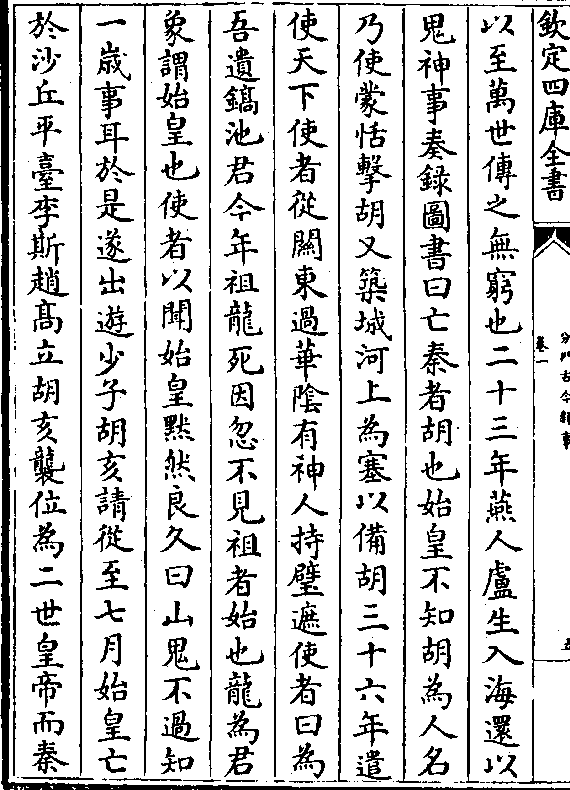 欽定四庫全書
卷一
以至萬世傳之無窮也二十三年燕人盧生入海還以
鬼神事奏錄圖書曰亡秦者胡也始皇不知胡為人名
乃使蒙恬擊胡又築城河上為塞以備胡三十六年遣
使天下使者從關東過華陰有神人持璧遮使者曰為
吾遺鎬池君今年祖龍死因忽不見祖者始也龍為君
象謂始皇也使者以聞始皇黙然良久曰山鬼不過知
一歲事耳於是遂出遊少子胡亥請從至七月始皇亡
於沙丘平臺李斯趙髙立胡亥襲位為二世皇帝而秦